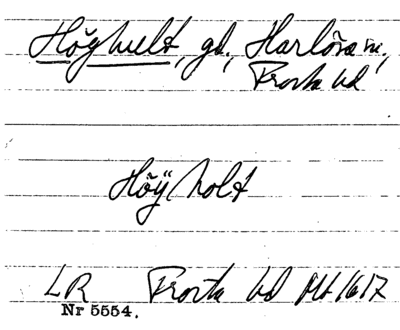 Höghult, gd, Harlösa sn,
Frosta hd
Höÿholt
LR Frosta hd Ml 1617
Nr 5554.